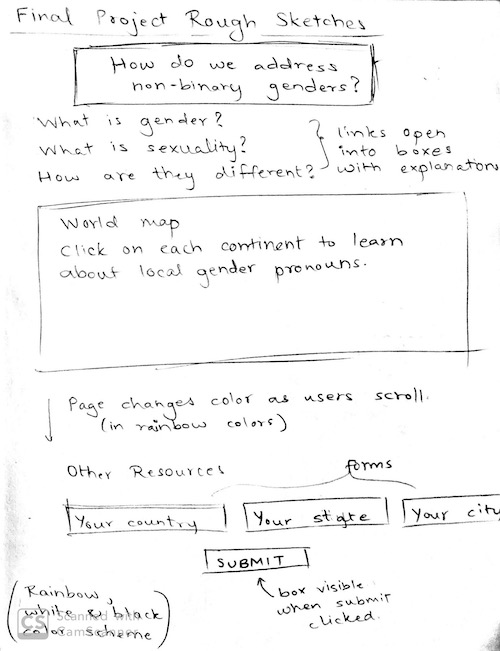 Final Project Rough Sketches
How do we address
non-binary genders?
What is gender?
What is sexuality?
How are they different?
links open
into boxes
with explanations
World map
Click on each continent to learn
about local gender pronouns.
Page changes color as users scroll.
(in rainbow colors)
Other Resources
forms
Your country
Your state
Your city
SUBMIT
box visible
when submit
clicked.
(Rainbow,
white & black
color scheme)
CS
Scanned with
CamScanner